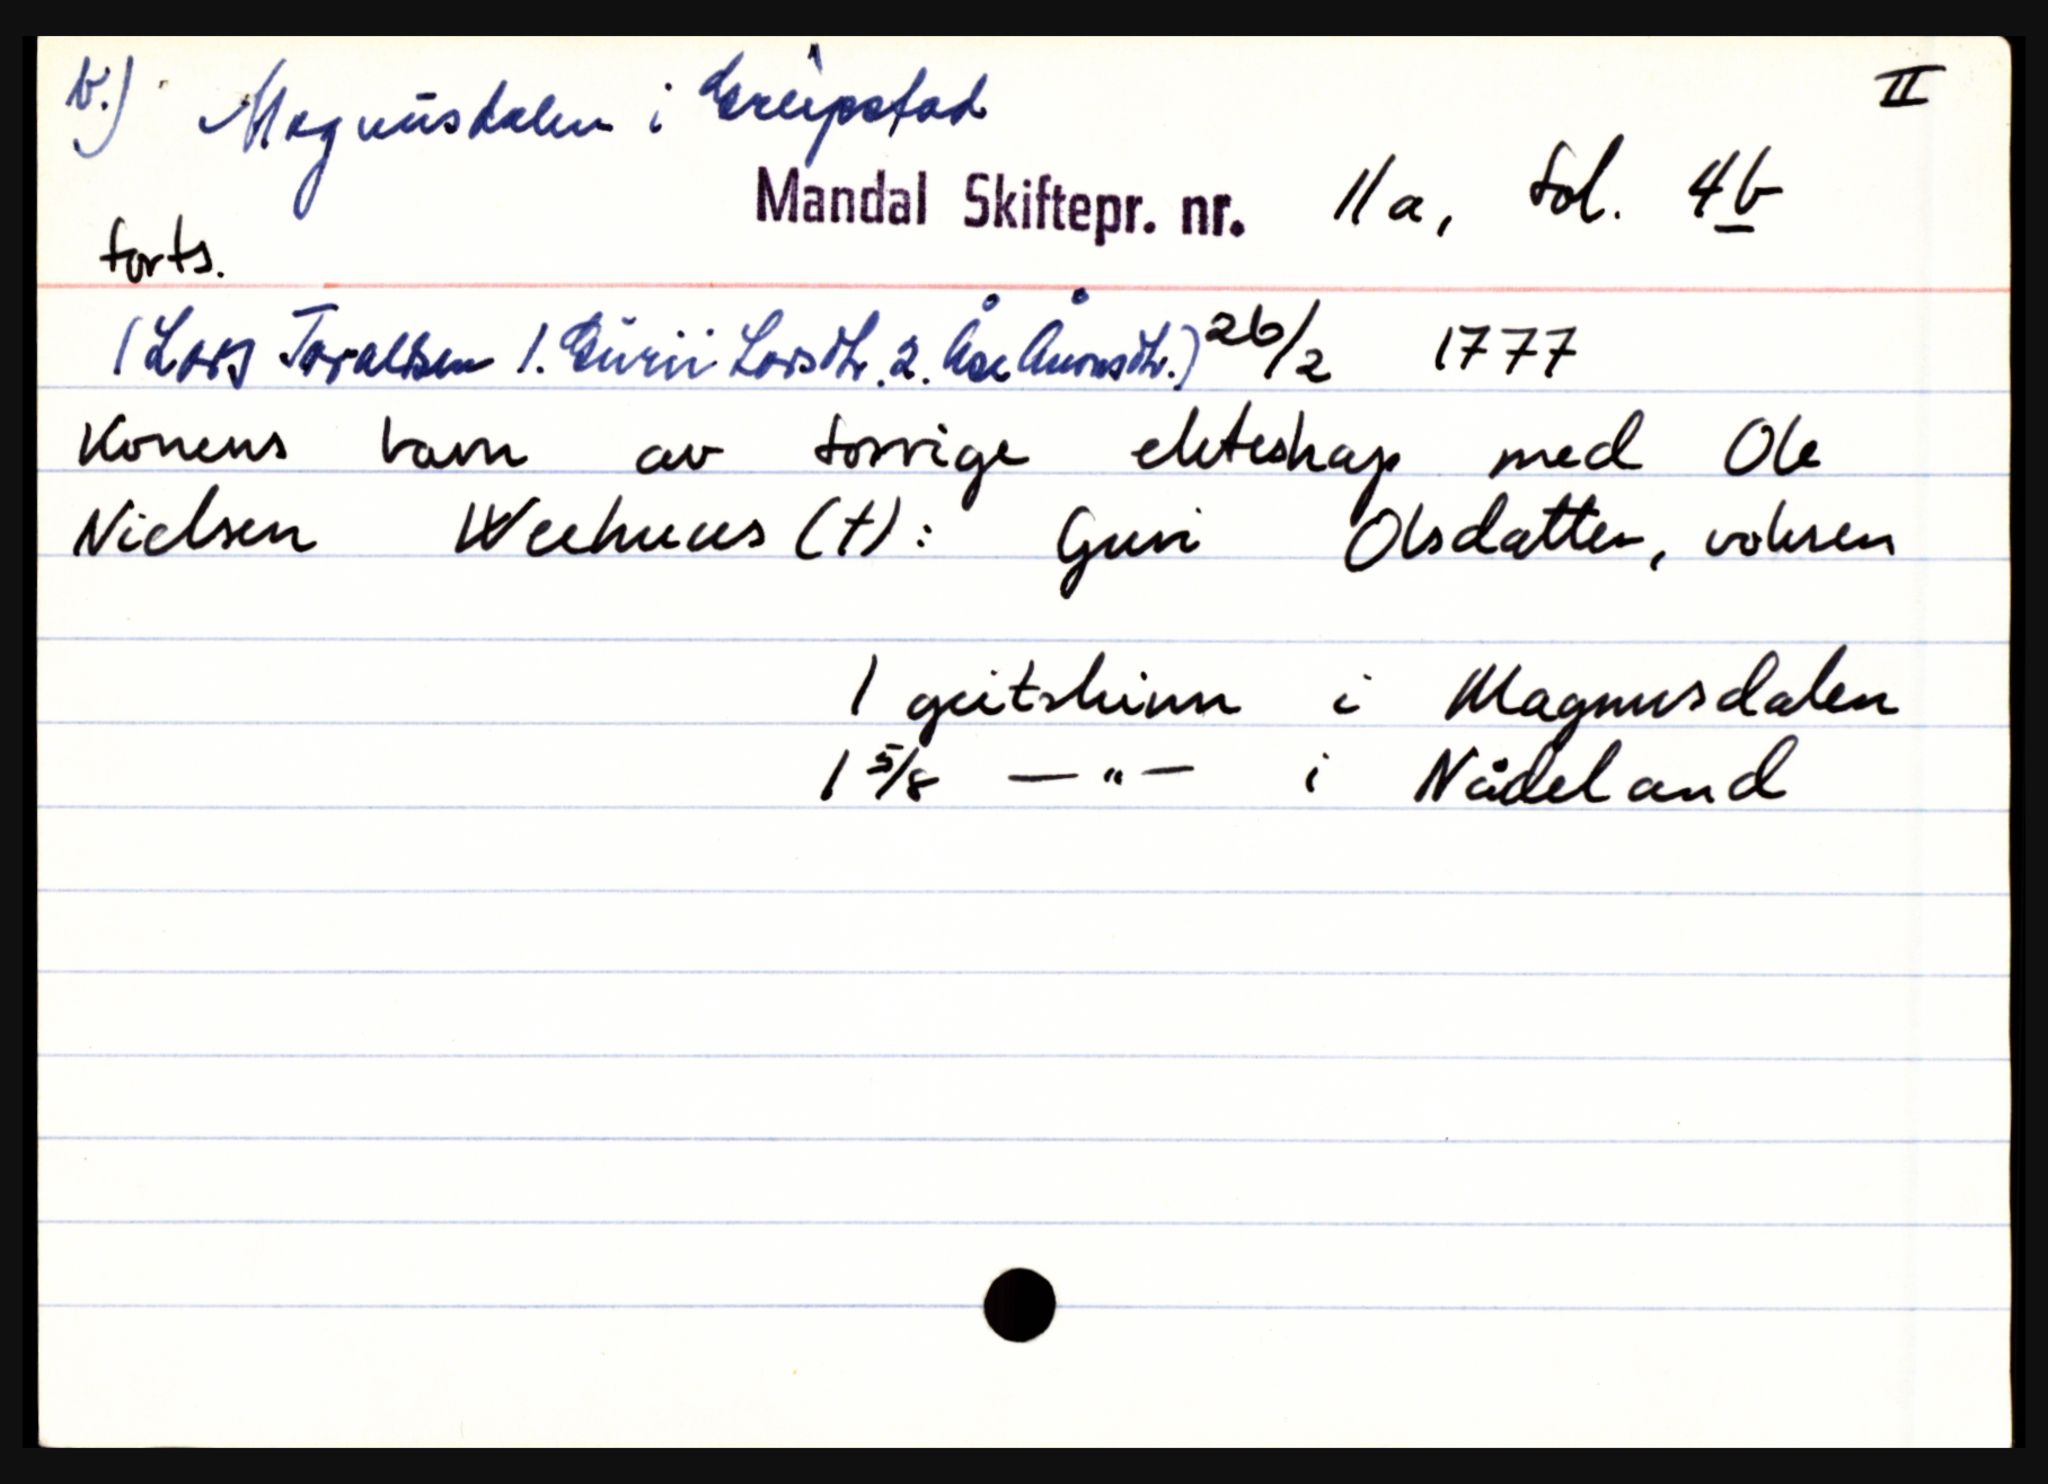 b.) Magnusdalen i Greipstad II
Mandal Skiftepr. nr. 11a, fol. 4b
forts.
(Lars Taraldsen 1. Gurii Larsdtr. 2. Åse Ånonsdtr.) 26/2 1777
Konens barn av forrige ekteskap med Ole
Nielsen Weehuus (†): Guri Olsdatter, voksen
1 geitskinn i Magnusdalen
1 5/8 — " — i Nådeland